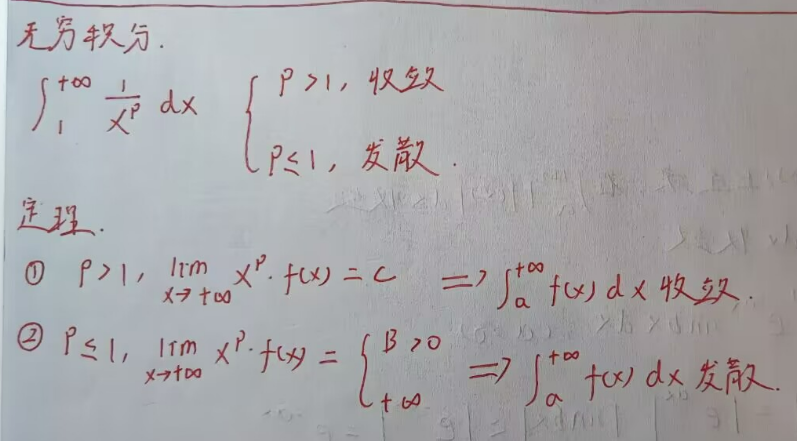 无穷积分.
∫₁^{+∞} 1/x^p dx { p>1, 收敛
p≤1, 发散.
定理.
① p>1, lim_{x→+∞} x^p·f(x)=c ⇒ ∫ₐ^{+∞} f(x) dx 收敛.
② p≤1, lim_{x→+∞} x^p·f(x)= { B>0
+∞ ⇒ ∫ₐ^{+∞} f(x) dx 发散.